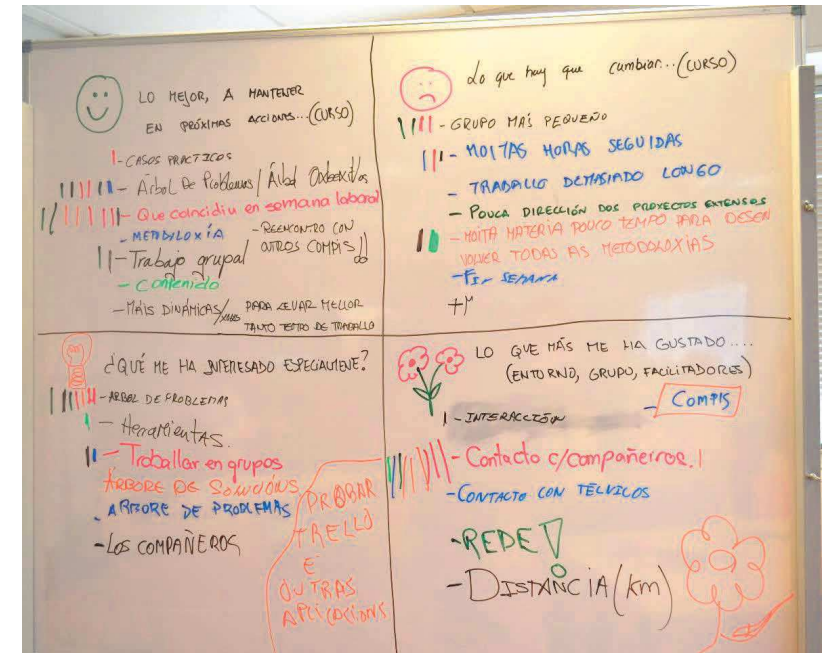 LO MEJOR, A MANTENER
EN PRÓXIMAS ACCIONES...(CURSO)
- CASOS PRACTICOS
- Árbol De Problemas / Árbol Obxexitivos
- Que coincidiu en semana laboral
- METODOLOXÍA
- REENCONTRO CON
OUTROS COMPIS!!
- Trabajo grupal
- Contenido
- MÁIS DINÁMICAS/ PARA LEVAR MELLOR
TANTO TEMPO DE TRABALLO
Lo que hay que cambiar...(CURSO)
- GRUPO MÁIS PEQUEÑO
- MOITAS HORAS SEGUIDAS
- TRABALLO DEMASIADO LONGO
- POUCA DIRECCIÓN DOS PROXECTOS EXTENSOS
- MOITA MATERIA POUCO TEMPO PARA DESEN
VOLVER TODAS AS METODOLOXIAS
- FIN SEMANA
¿QUÉ ME HA INTERESADO ESPECIALMENE?
- ARBOL DE PROBLEMAS
- Herramientas.
- Traballar en grupos
ÁRBORE DE SOLUCIÓNS
- ARBORE DE PROBLEMAS
- LOS COMPAÑEROS
PROBAR
TRELLO
E
OUTRAS
APLICACIONS
LO QUE MÁS ME HA GUSTADO....
(ENTORNO, GRUPO, FACILITADORES)
- COMPIS
- INTERACCIÓN
- Contacto c/compañeiros.
- CONTACTO CON TÉCNICOS
- REDE!
- DISTANCIA (km)